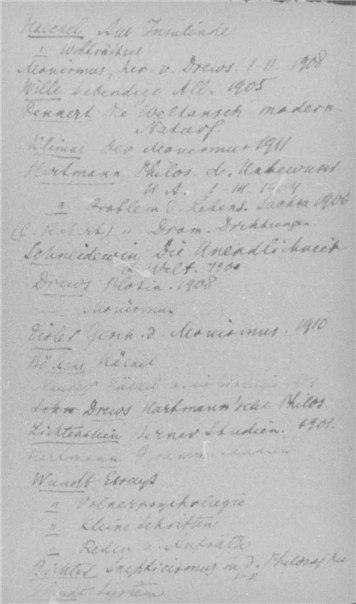 Haeckel, Aus Insulinde
" Welträtsel
Monismus, her. v. Drews. I-II. 1908
Wille Lebendige All. 1905
Dennert Die Weltansch. modern.
Naturf.
Klimke Der Monismus 1911
Hartmann Philos. d. Unbewusst
U. A. I-III. 1904
" Problem d. Lebens. Sachsa 1906
(C. Robert) " Dram. Dichtungen
Schneidewin Die Unendlichkeit
d. Welt. 1900
Drews Plotin. 1908
Monismus
Eisler Gesch. d. Monismus. 1910
Bölsche Häckel
Drews Hartmann'sche Philos
Lichtenstein Berner Studien. 1901.
Hartmann
Wundt Essays
" Völkerpsychologie
" Kleine Schriften
" Reden u. Aufsätze
Richter Skepticismus in d. Philosophie
I-II
Wundt System